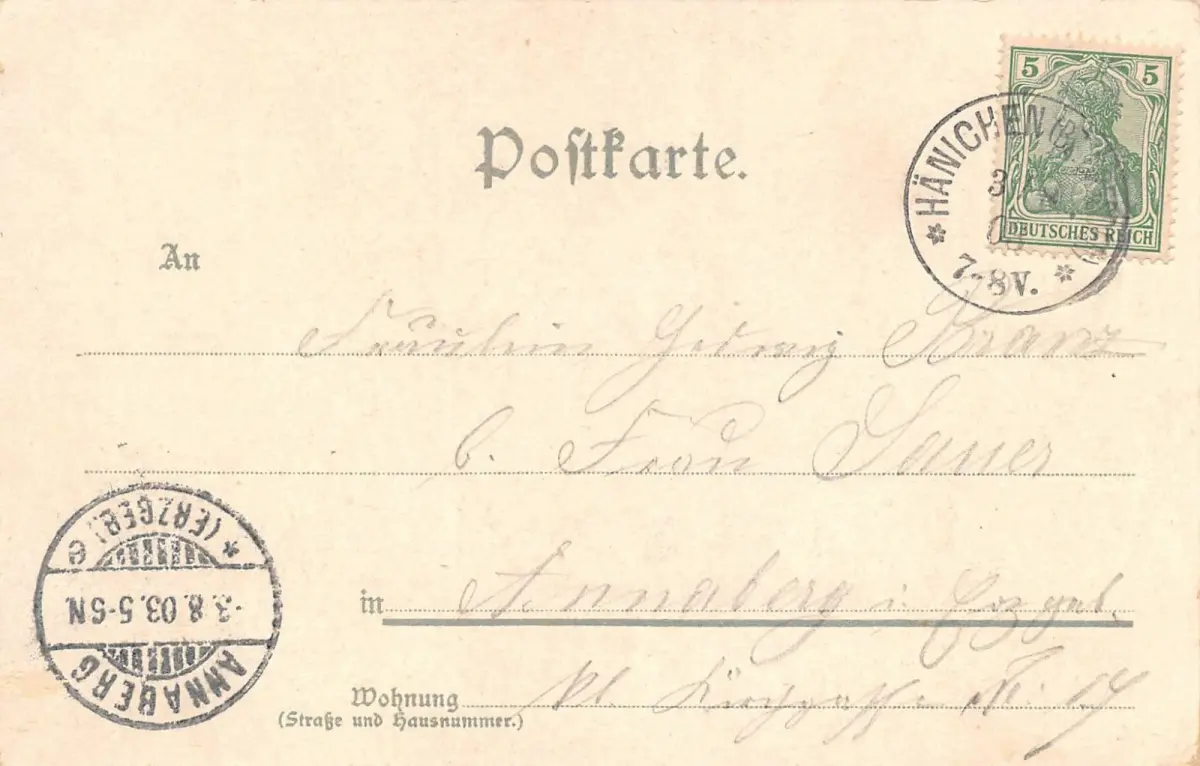 Postkarte.
5 5
DEUTSCHES REICH
* HÄNICHEN *
3
03
7-8V.
An
Fräulein Hedwig Kranz
b. Frau Sauer
in Annaberg i. Erzgeb.
Wohnung kl. Kirchgasse N: 14
(Straße und Hausnummer.)
ANNABERG
-3.8.03.5-6N
* (ERZGEB.) e